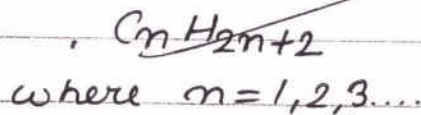 . CnH2n+2
where n=1,2,3....